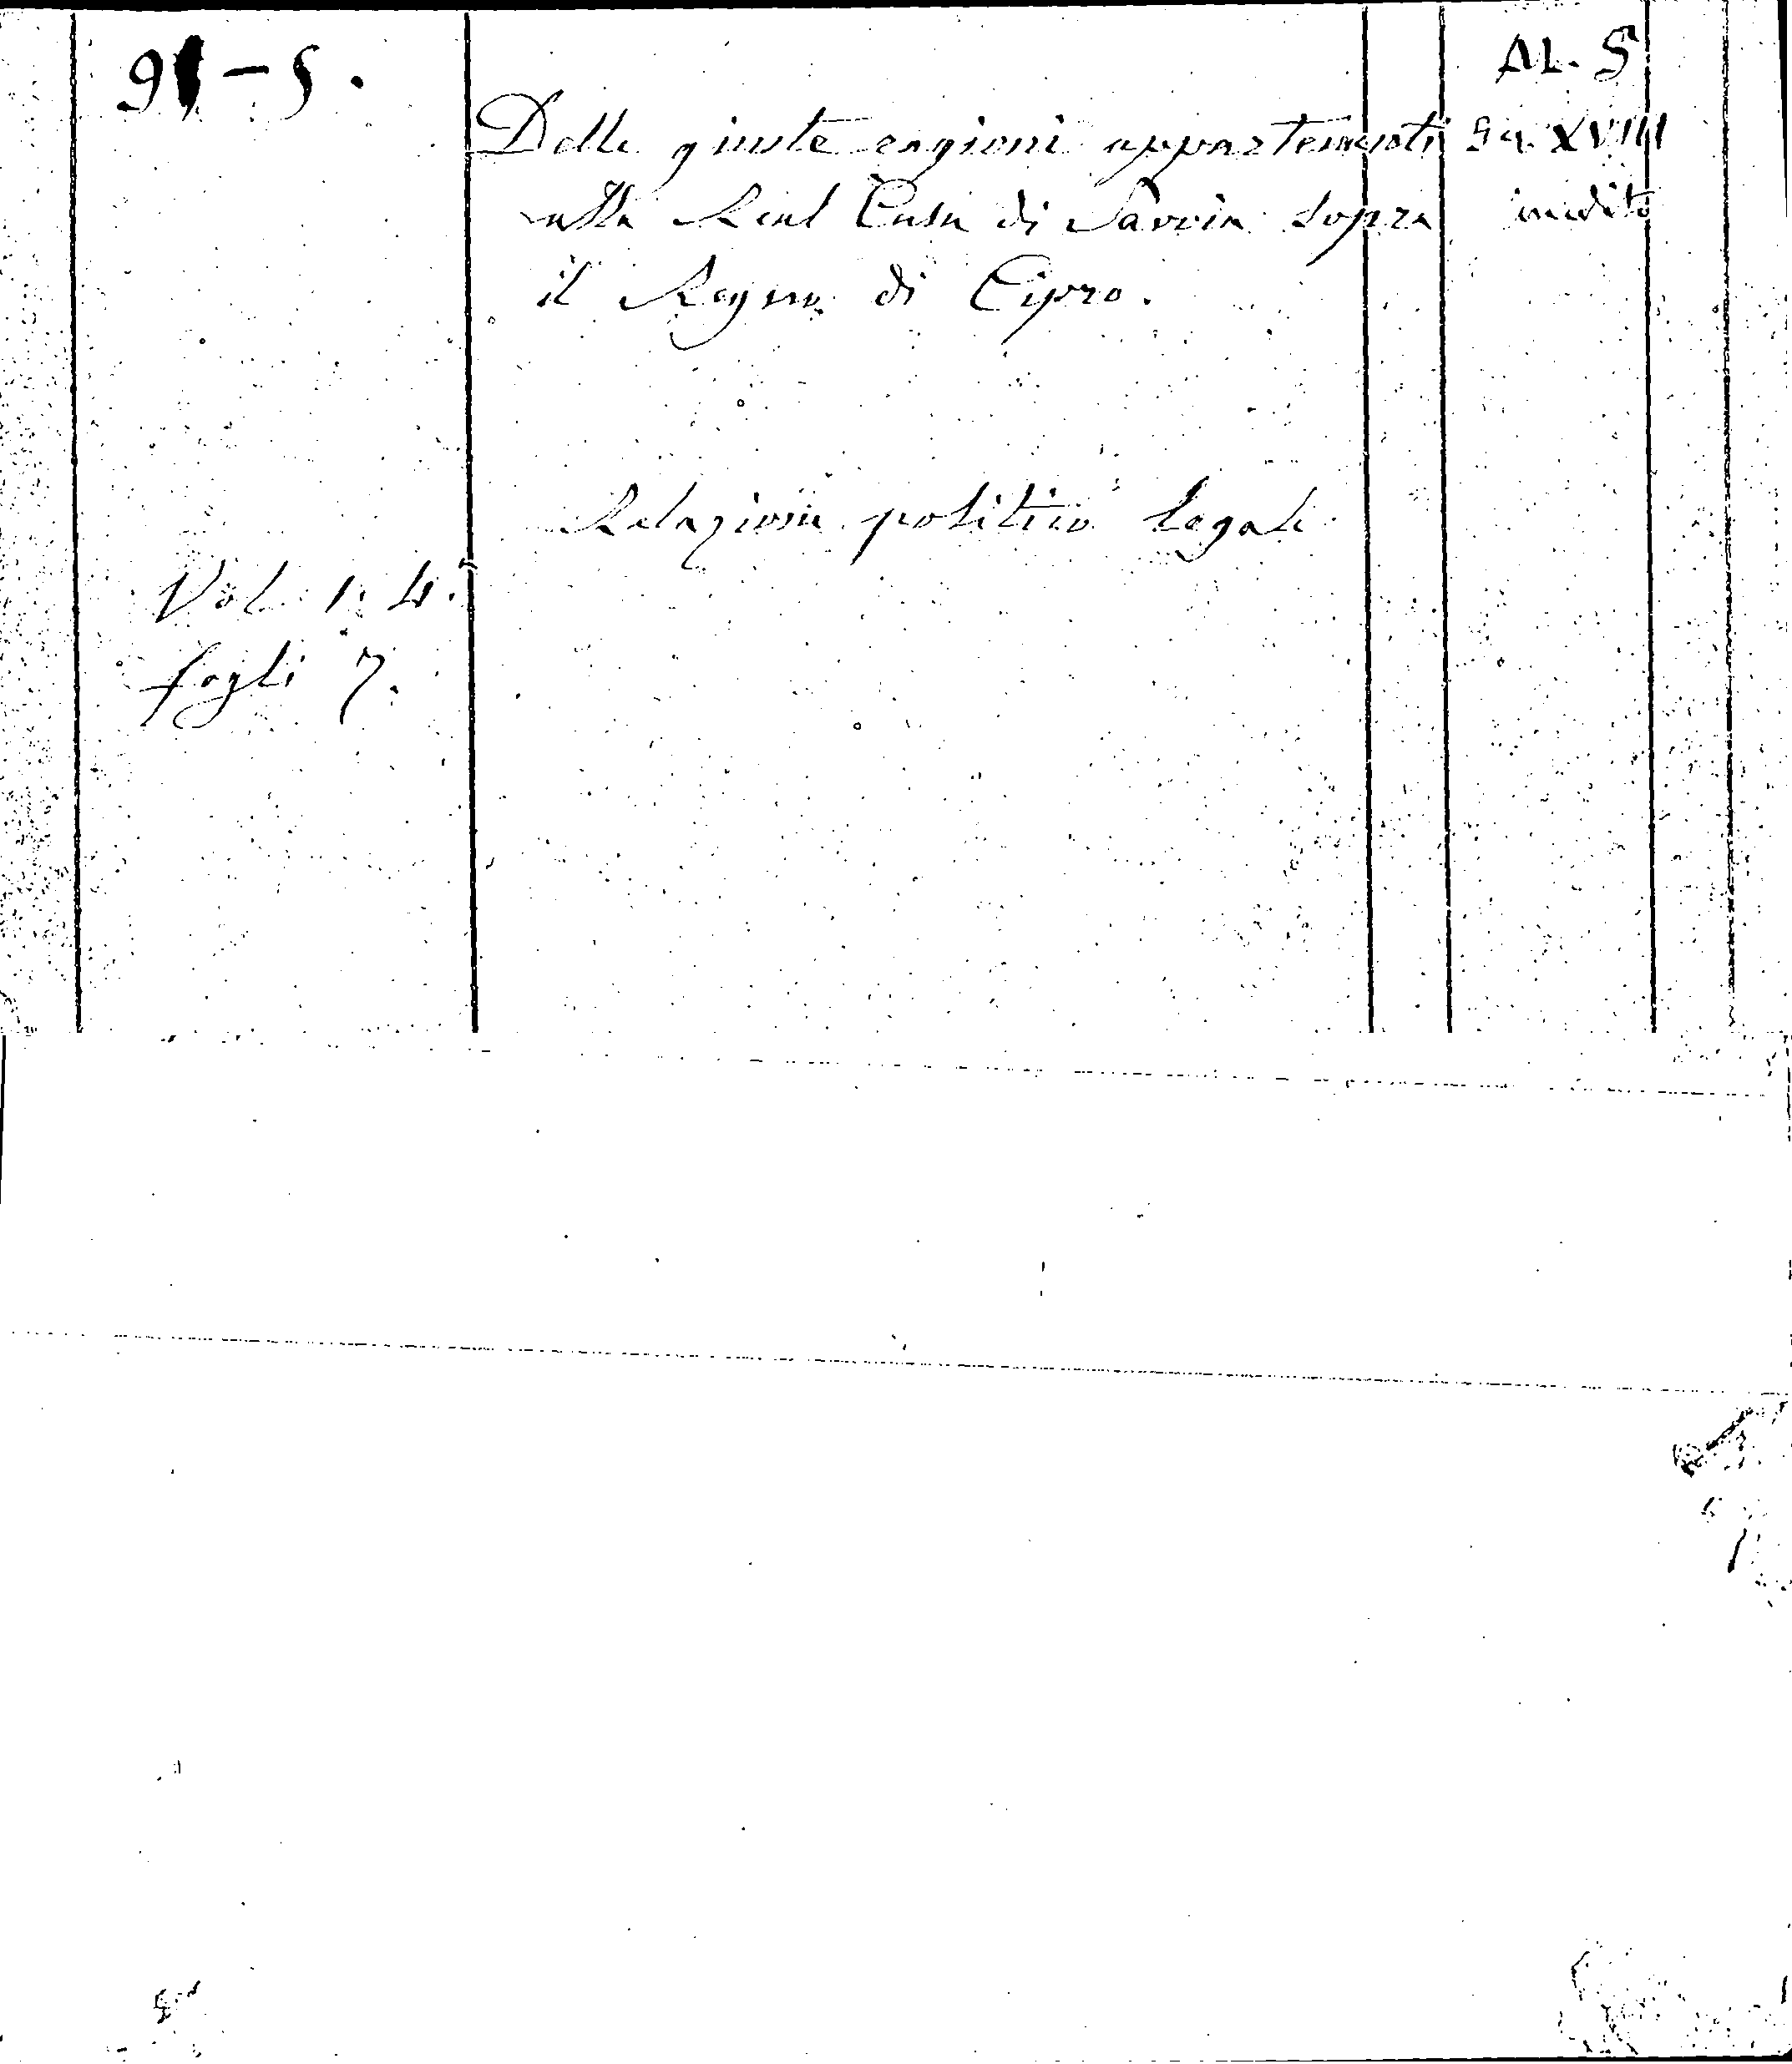 91-5.
Delle giuste ragioni appartenenti
alla Real Casa di Savoia sopra
il Regno di Cipro.
Relazione politico legale
Vol. 1. 4.º
fogli 7.
AL. 5
Sec. XVIII
inedito